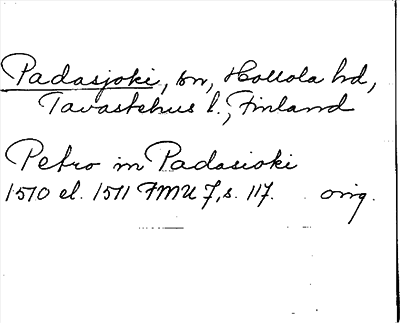 Padasjoki, sn, Hollola hd,
Tavastehus l., Finland
Petro in Padasioki
1510 el. 1511 FMU 7, s. 117. orig.